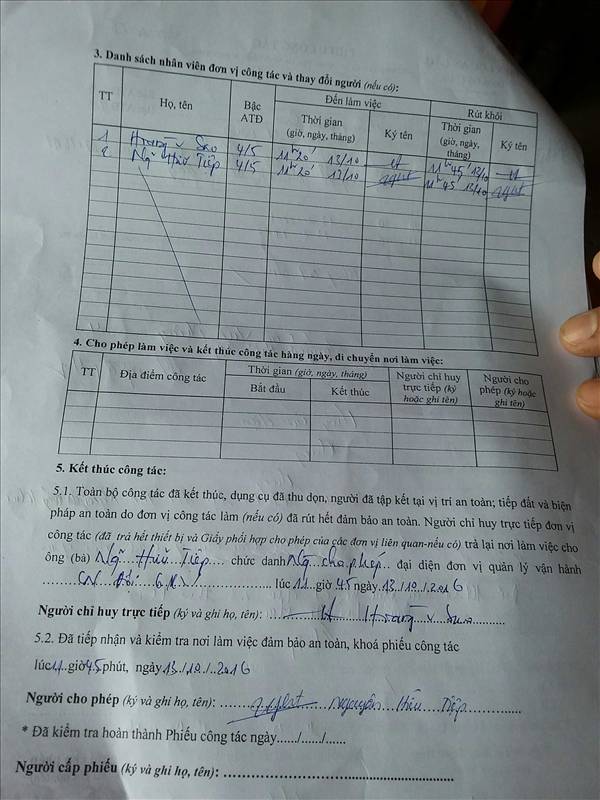 3. Danh sách nhân viên đơn vị công tác và thay đổi người (nếu có):
TT Họ, tên Bậc ATĐ Đến làm việc Rút khỏi
Thời gian (giờ, ngày, tháng) Ký tên Thời gian (giờ, ngày, tháng) Ký tên
1 Hoàng V Sao 4/5 11h20' 13/10 11h45' 13/10
2 Ng Hữu Tiệp 4/5 11h20' 13/10 11h45' 13/10
4. Cho phép làm việc và kết thúc công tác hàng ngày, di chuyển nơi làm việc:
TT Địa điểm công tác Thời gian (giờ, ngày, tháng) Người chỉ huy trực tiếp (ký hoặc ghi tên) Người cho phép (ký hoặc ghi tên)
Bắt đầu Kết thúc
5. Kết thúc công tác:
5.1. Toàn bộ công tác đã kết thúc, dụng cụ đã thu dọn, người đã tập kết tại vị trí an toàn; tiếp đất và biện
pháp an toàn do đơn vị công tác làm (nếu có) đã rút hết đảm bảo an toàn. Người chỉ huy trực tiếp đơn vị
công tác (đã trả hết thiết bị và Giấy phối hợp cho phép của các đơn vị liên quan-nếu có) trả lại nơi làm việc cho
ông (bà) Ng Hữu Tiệp chức danh Ng cho phép đại diện đơn vị quản lý vận hành
lúc 11 giờ 45 ngày 13/10/2016
Người chỉ huy trực tiếp (ký và ghi họ, tên): Hoàng V Sao
5.2. Đã tiếp nhận và kiểm tra nơi làm việc đảm bảo an toàn, khoá phiếu công tác
lúc 11 giờ 45 phút, ngày 13/10/2016
Người cho phép (ký và ghi họ, tên): Nguyễn Hữu Tiệp
* Đã kiểm tra hoàn thành Phiếu công tác ngày....../....../......
Người cấp phiếu (ký và ghi họ, tên): ..................................................